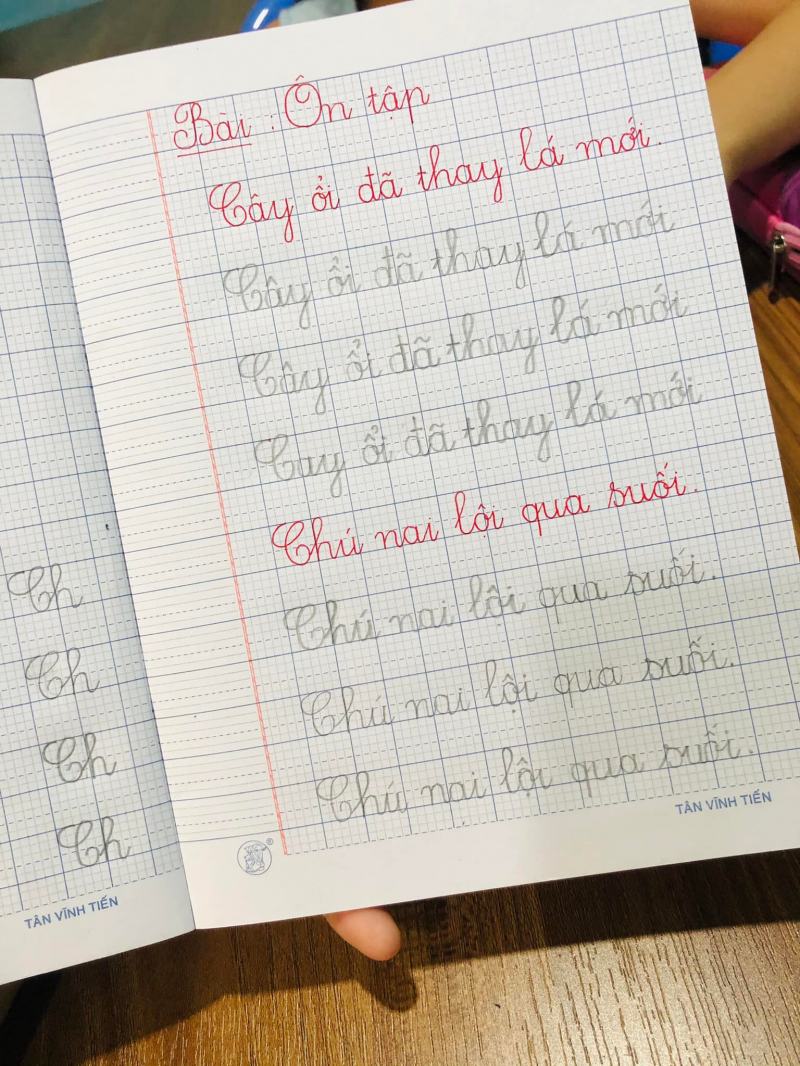 Ch
Ch
Ch
Ch
TÂN VĨNH TIẾN
Bài: Ôn tập
Cây ổi đã thay lá mới.
Cây ổi đã thay lá mới
Cây ổi đã thay lá mới
Cay ổi đã thay lá mới
Chú nai lội qua suối.
Chú nai lội qua suối.
Chú nai lội qua suối.
Chú nai lội qua suối.
TÂN VĨNH TIẾN